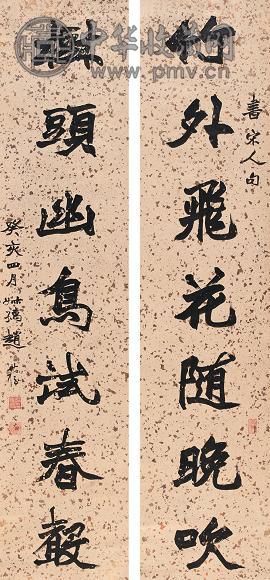 中华收藏网
www.pmv.cn
書宋人句
竹外飛花随晚吹
頭幽鳥試春聲
癸亥四月叔孺趙